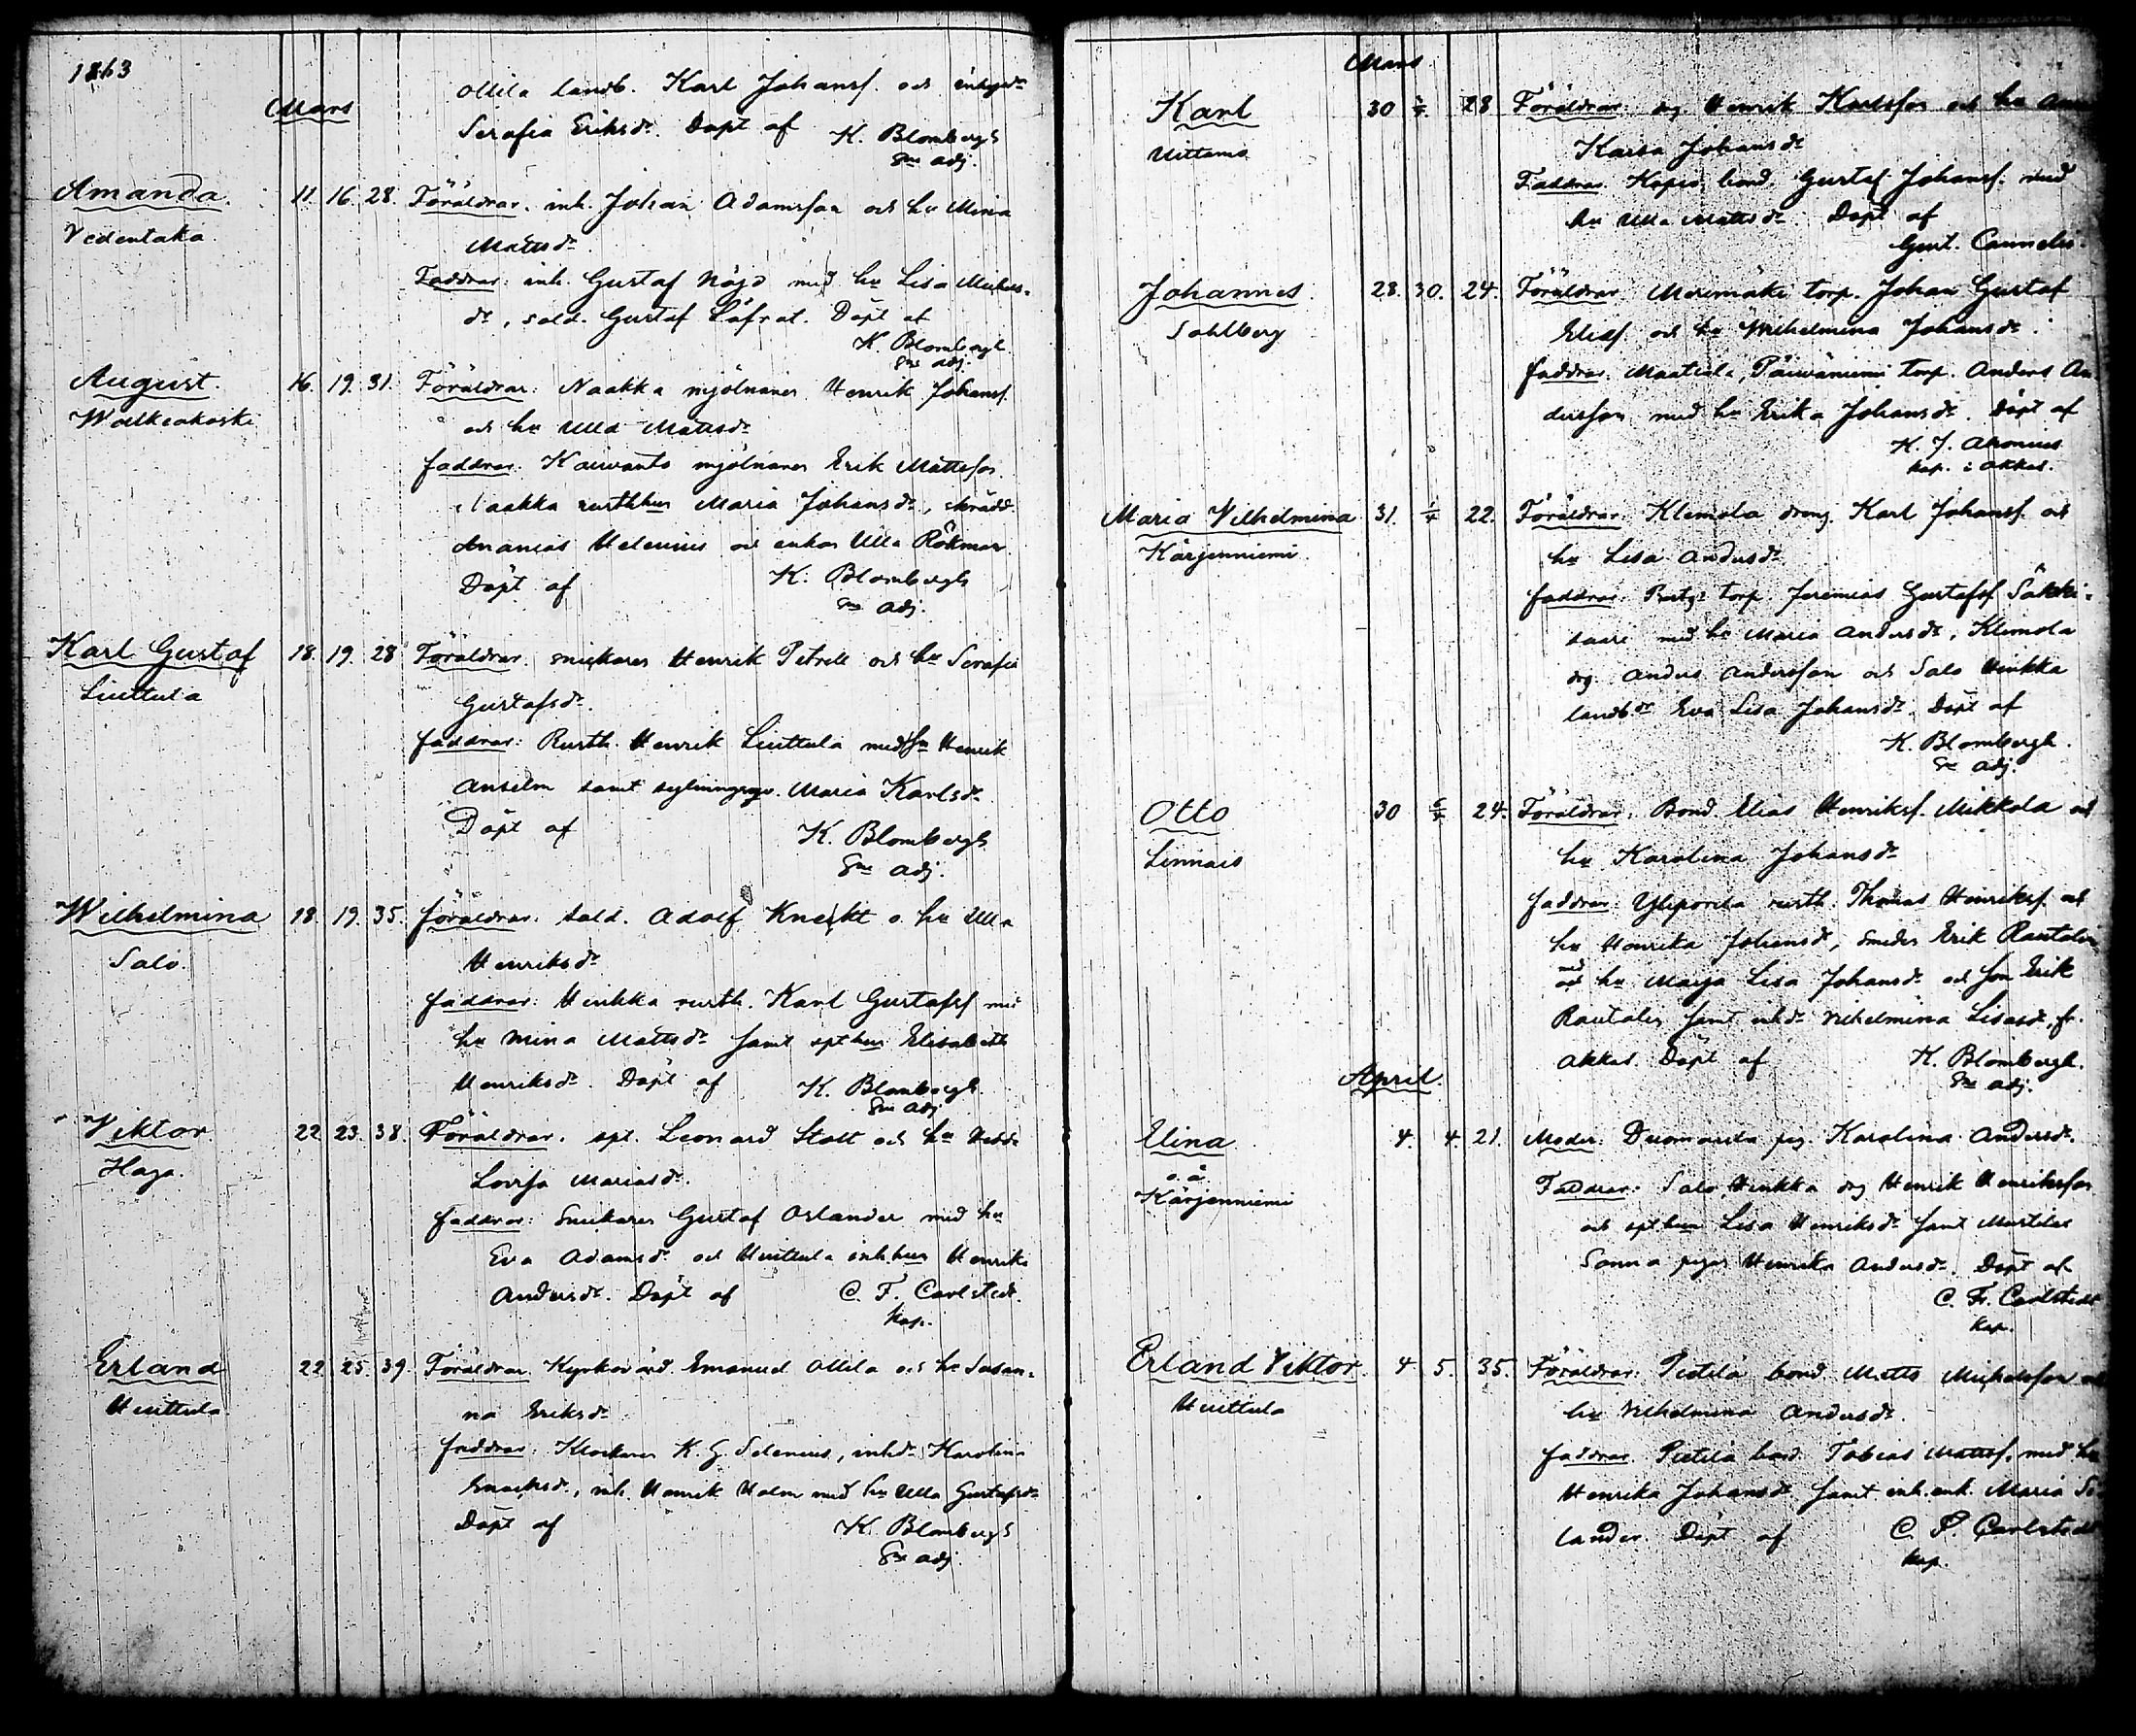 1863
Mars
Ollila landb. Karl Johansf. och inhysd:
Serafia Eriksdr. Döpt af K. Blombergh
Exs adj.
Amanda. 11. 16. 28. Föräldrar: inh. Johan Adamsson och hu Mina
Vedentaka. Mattsdr
Faddrar: inh. Gustaf Nöjd med hu Lisa Michels-
dr, sold. Gustaf Döpt af
K. Blombergh.
Exs adj.
August. 16. 19. 31. Föräldrar: Naakka mjölnaren Henrik Johansf.
Walkeakoski och hu Ulla Mattsdr
faddrar: mjölnaren Erik Mattsson
Naakka rusthhun Maria Johansdr, skrädd.
Ananias Helenius och enkan Ulla Rökman.
Döpt af K. Blombergh
Exs adj.
Karl Gustaf 18. 19. 28 Föräldrar: snickaren Henrik Petrell och hu Serafia
Liuttula Gustafsdr.
faddrar: Rusth. Henrik Liuttula med sn Henrik
Anselm samt Maria Karlsdr.
Döpt af K. Blombergh
Exs adj.
Wilhelmina 18. 19. 35. föräldrar: sold. Adolf Knekt o. hu Ulla
Salo. Henriksdr
faddrar: Uukka rusth. Karl Gustafsf med
hu Mina Mattsdr samt spthun Elisabeth
Henriksdr. Döpt af K. Blombergh.
Exs adj
Viktor. 22 23. 38. Föräldrar: spt. Leonard Stolt och hu Hedda
Haga. Lovisa Mariasdr.
faddrar: Snickaren Gustaf Oslander med hu
Eva Adamsdr och Huittula inhhun Henrika
Andersdr. Döpt af C. F. Carlstedt.
kap.
Erland 22. 25. 39. Föräldrar: Kyrkovärd. Emanuel Ollila och hu Susan-
Huittula. na Eriksdr
faddrar: Klockaren K. G Selenius, inhdr Karolina
Enoksdr, inh. Henrik Holm med hu Ulla Gustafsdr
Döpt af K. Blombergh
Exs adj.
Mars
Karl 30 5/4. 28 Föräldrar: drg. Henrik Karlsson och hu Anna
Uittamo Kaisa Johansdr
Faddrar: Kopio bond. Gustaf Johansf. med
hu Ulla Mattsdr. Döpt af
Gust. Cannelin.
Johannes. 28. 30. 24. Föräldrar: Merimäki torp. Johan Gustaf
Sahlberg Eliasf och hu Wilhelmina Johansdr.
faddrar: Maatiala, Päiväniemi torp. Anders An-
dersson med hu Erika Johansdr. Döpt af
K. J. Ahonius
kap. i Akkas.
Maria Vilhelmina 31. 1/4 22. Föräldrar: Klemola dreng. Karl Johansf. och
Kärjenniemi. hu Lisa Andersdr
faddrar: Prestg: torp. Jeremias Gustafsf Säkki-
saari med hu Maria Andersdr, Klemola
drg. Anders Andersson och Salo Uukka
landb.dr Eva Lisa Johansdr. Döpt af
K. Blombergh.
Ex adj.
Otto 30 6/4 24. Föräldrar: Bond. Elias Henriksf. Mikkola och
Linnais hu Karolina Johansdr
faddrar: Yliporila rusth. Thomas Henriksf. och
hu Henrika Johansdr, smeden Erik Rautalin
med
och hu Marja Lisa Johansdr och son Erik
Rautalin samt inhdr Vilhelmina Lisasdr, fr.
Akkas. Döpt af K. Blombergh.
Exs adj.
April.
Elina 4. 4. 21. Moder: Duomarila pig. Karolina Andersdr.
o. ä. Faddrar: Salo Uukka drg Henrik Henriksson
Kärjenniemi och spthun Lisa Henriksdr samt Marttilas
Sanna pigan Henrika Andersdr. Döpt af
C. F. Carlstedt
kap.
Erland Viktor. 4. 5. 35. Föräldrar: Pietilä bond. Matts Michelsson och
Huittula hu Vilhelmina Andersdr.
faddrar: Pietilä bond. Tobias Mattsf. med hu
Henrika Johansdr samt inh.enk. Maria Se-
lander. Döpt af C. F. Carlstedt
kap.